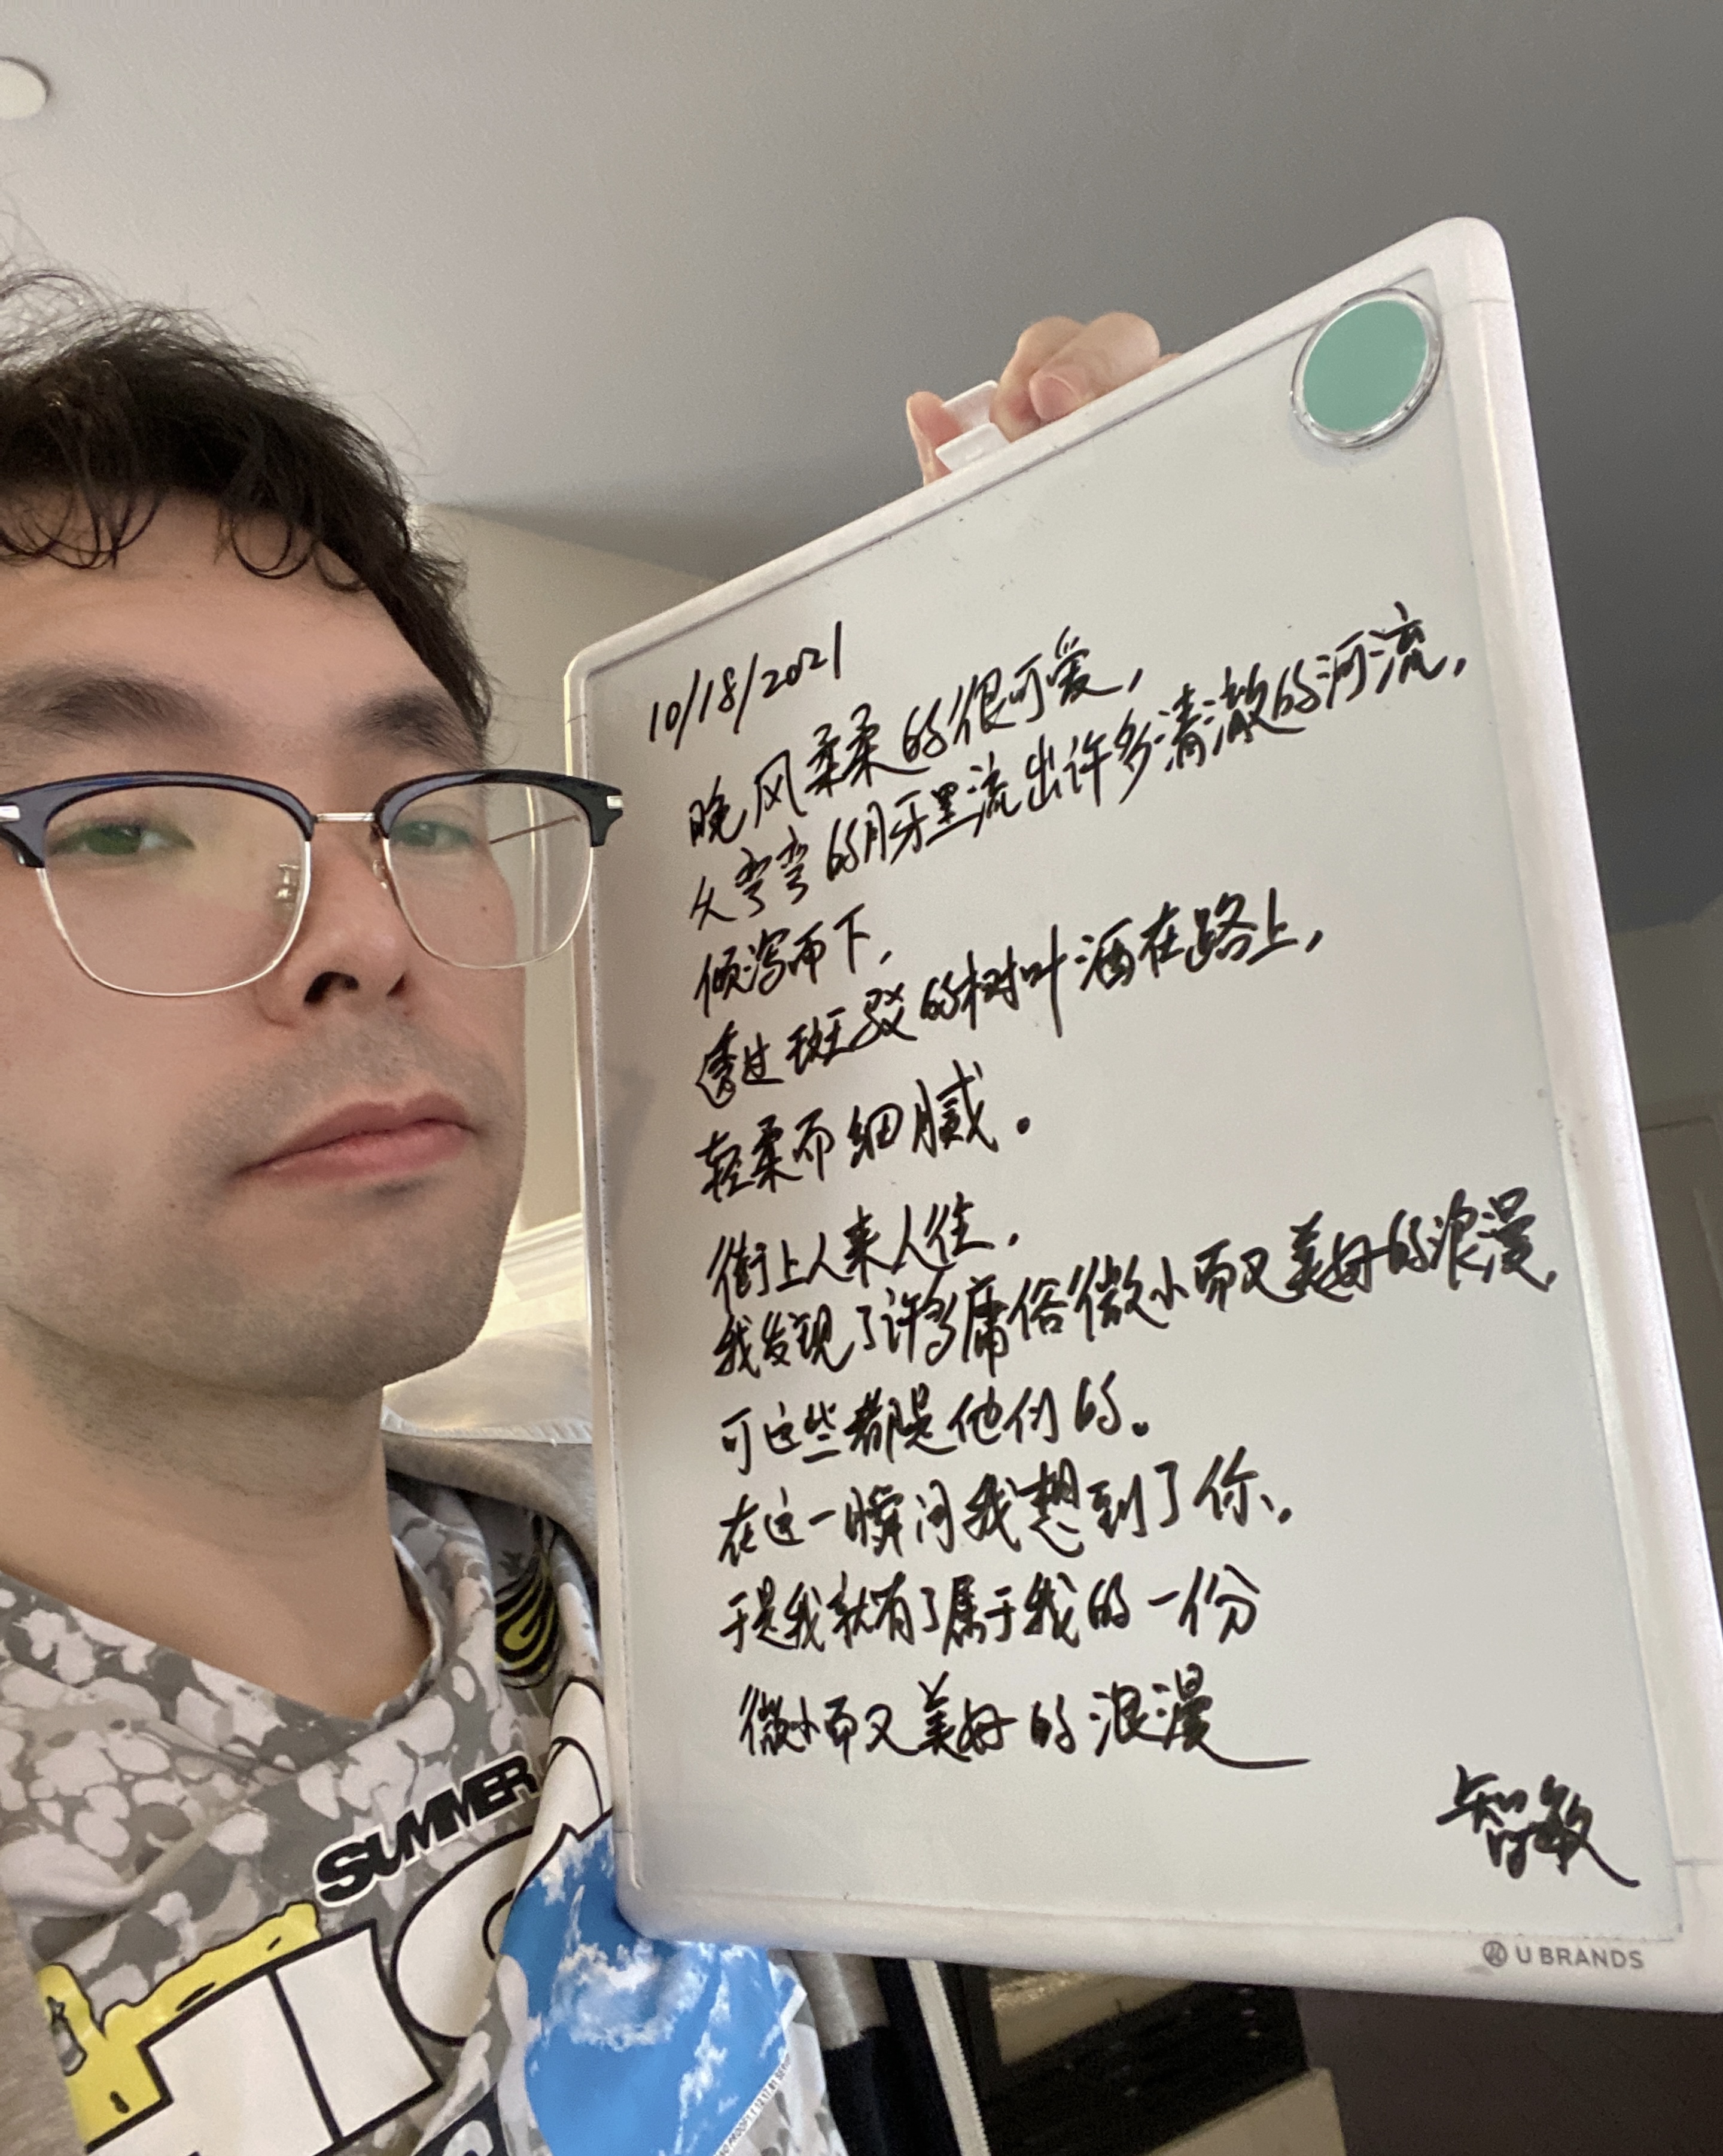 10/18/2021
晚风柔柔的很可爱,
从弯弯的月牙里流出许多清澈的河流,
倾泻而下,
透过斑驳的树叶洒在路上,
轻柔而细腻。
街上人来人往,
我发现了许多庸俗微小而又美好的浪漫,
可这些都是他们的。
在这一瞬间我想到了你,
于是我就有了属于我的一份
微小而又美好的浪漫
智敏
U BRANDS
SUMMER